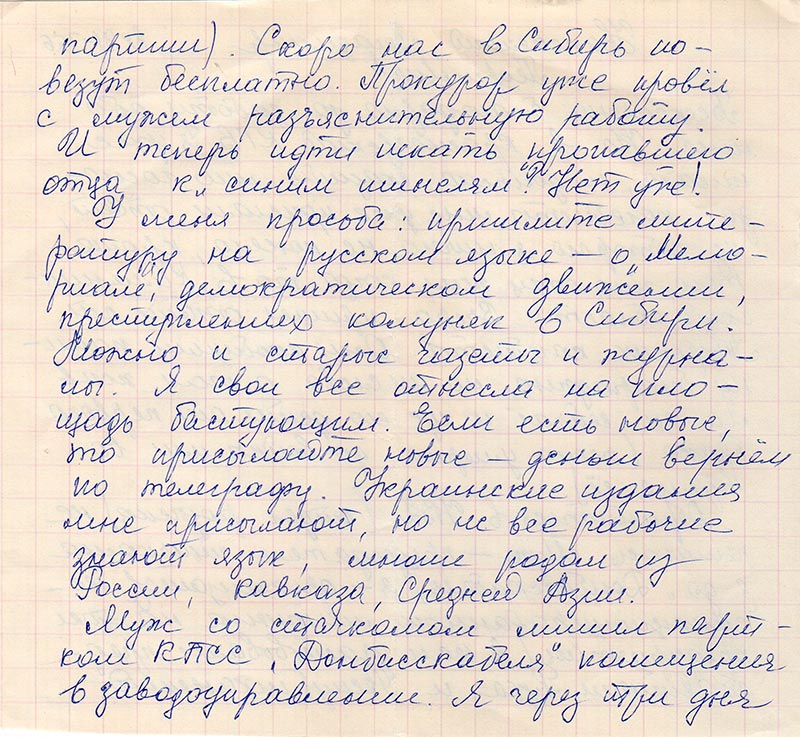 партии). Скоро нас в Сибирь по-
везут бесплатно. Прокурор уже провёл
с мужем разъяснительную работу.
И теперь идти искать пропавшего
отца к „синим шинелям"? Нет уж!
У меня просьба: пришлите лите-
ратуру на русском языке – о „Мемо-
риале", демократическом движении,
преступлениях комуняк в Сибири.
Можно и старые газеты и журна-
лы. Я свои все отнесла на пло-
щадь бастующим. Если есть новые,
то присылайте новые – деньги вернём
по телеграфу. Украинские издания
мне присылают, но не все рабочие
знают язык, многие родом из
России, Кавказа, Средней Азии.
Муж со стачкомом лишил парт-
ком КПСС „Донбасскабеля" помещения
в заводоуправлении. Я через три дня